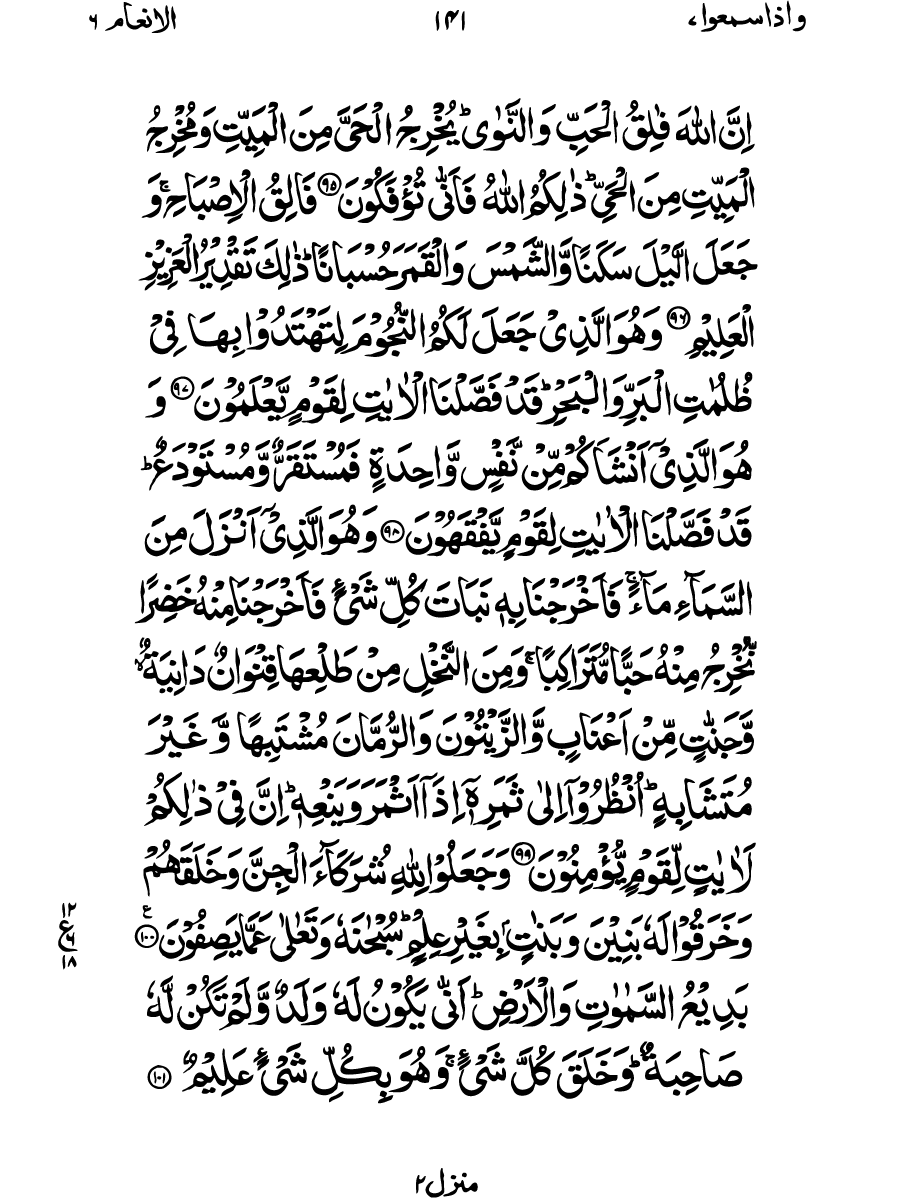 واذاسمعوا، ۱۴۱ الانعام ۶
اِنَّ اللّٰهَ فٰلِقُ الْحَبِّ وَالنَّوٰى ؕ يُخْرِجُ الْحَىَّ مِنَ الْمَيِّتِ وَمُخْرِجُ
الْمَيِّتِ مِنَ الْحَىِّ ؕ ذٰلِكُمُ اللّٰهُ فَاَنّٰى تُؤْفَكُوْنَ ﴿۹۵﴾ فَالِقُ الْاِصْبَاحِ ۚ وَ
جَعَلَ الَّيْلَ سَكَنًا وَّالشَّمْسَ وَالْقَمَرَ حُسْبَانًا ؕ ذٰلِكَ تَقْدِيْرُ الْعَزِيْزِ
الْعَلِيْمِ ﴿۹۶﴾ وَهُوَ الَّذِىْ جَعَلَ لَكُمُ النُّجُوْمَ لِتَهْتَدُوْا بِهَا فِىْ
ظُلُمٰتِ الْبَرِّ وَالْبَحْرِ ؕ قَدْ فَصَّلْنَا الْاٰيٰتِ لِقَوْمٍ يَّعْلَمُوْنَ ﴿۹۷﴾ وَ
هُوَ الَّذِىْۤ اَنْشَاَكُمْ مِّنْ نَّفْسٍ وَّاحِدَةٍ فَمُسْتَقَرٌّ وَّمُسْتَوْدَعٌ ؕ
قَدْ فَصَّلْنَا الْاٰيٰتِ لِقَوْمٍ يَّفْقَهُوْنَ ﴿۹۸﴾ وَهُوَ الَّذِىْۤ اَنْزَلَ مِنَ
السَّمَآءِ مَآءً ۚ فَاَخْرَجْنَا بِهٖ نَبَاتَ كُلِّ شَىْءٍ فَاَخْرَجْنَا مِنْهُ خَضِرًا
نُّخْرِجُ مِنْهُ حَبًّا مُّتَرَاكِبًا ۚ وَمِنَ النَّخْلِ مِنْ طَلْعِهَا قِنْوَانٌ دَانِيَةٌ ۙ
وَّجَنّٰتٍ مِّنْ اَعْنَابٍ وَّالزَّيْتُوْنَ وَالرُّمَّانَ مُشْتَبِهًا وَّغَيْرَ
مُتَشَابِهٍ ؕ اُنْظُرُوْۤا اِلٰى ثَمَرِهٖۤ اِذَاۤ اَثْمَرَ وَيَنْعِهٖ ؕ اِنَّ فِىْ ذٰلِكُمْ
لَاٰيٰتٍ لِّقَوْمٍ يُّؤْمِنُوْنَ ﴿۹۹﴾ وَجَعَلُوْا لِلّٰهِ شُرَكَآءَ الْجِنَّ وَخَلَقَهُمْ
وَخَرَقُوْا لَهٗ بَنِيْنَ وَبَنٰتٍۭ بِغَيْرِ عِلْمٍ ؕ سُبْحٰنَهٗ وَتَعٰلٰى عَمَّا يَصِفُوْنَ ﴿۱۰۰﴾ ع
۱۲
ع ۶
۱۸
بَدِيْعُ السَّمٰوٰتِ وَالْاَرْضِ ؕ اَنّٰى يَكُوْنُ لَهٗ وَلَدٌ وَّلَمْ تَكُنْ لَّهٗ
صَاحِبَةٌ ؕ وَخَلَقَ كُلَّ شَىْءٍ ۚ وَهُوَ بِكُلِّ شَىْءٍ عَلِيْمٌ ﴿۱۰۱﴾
منزل۲